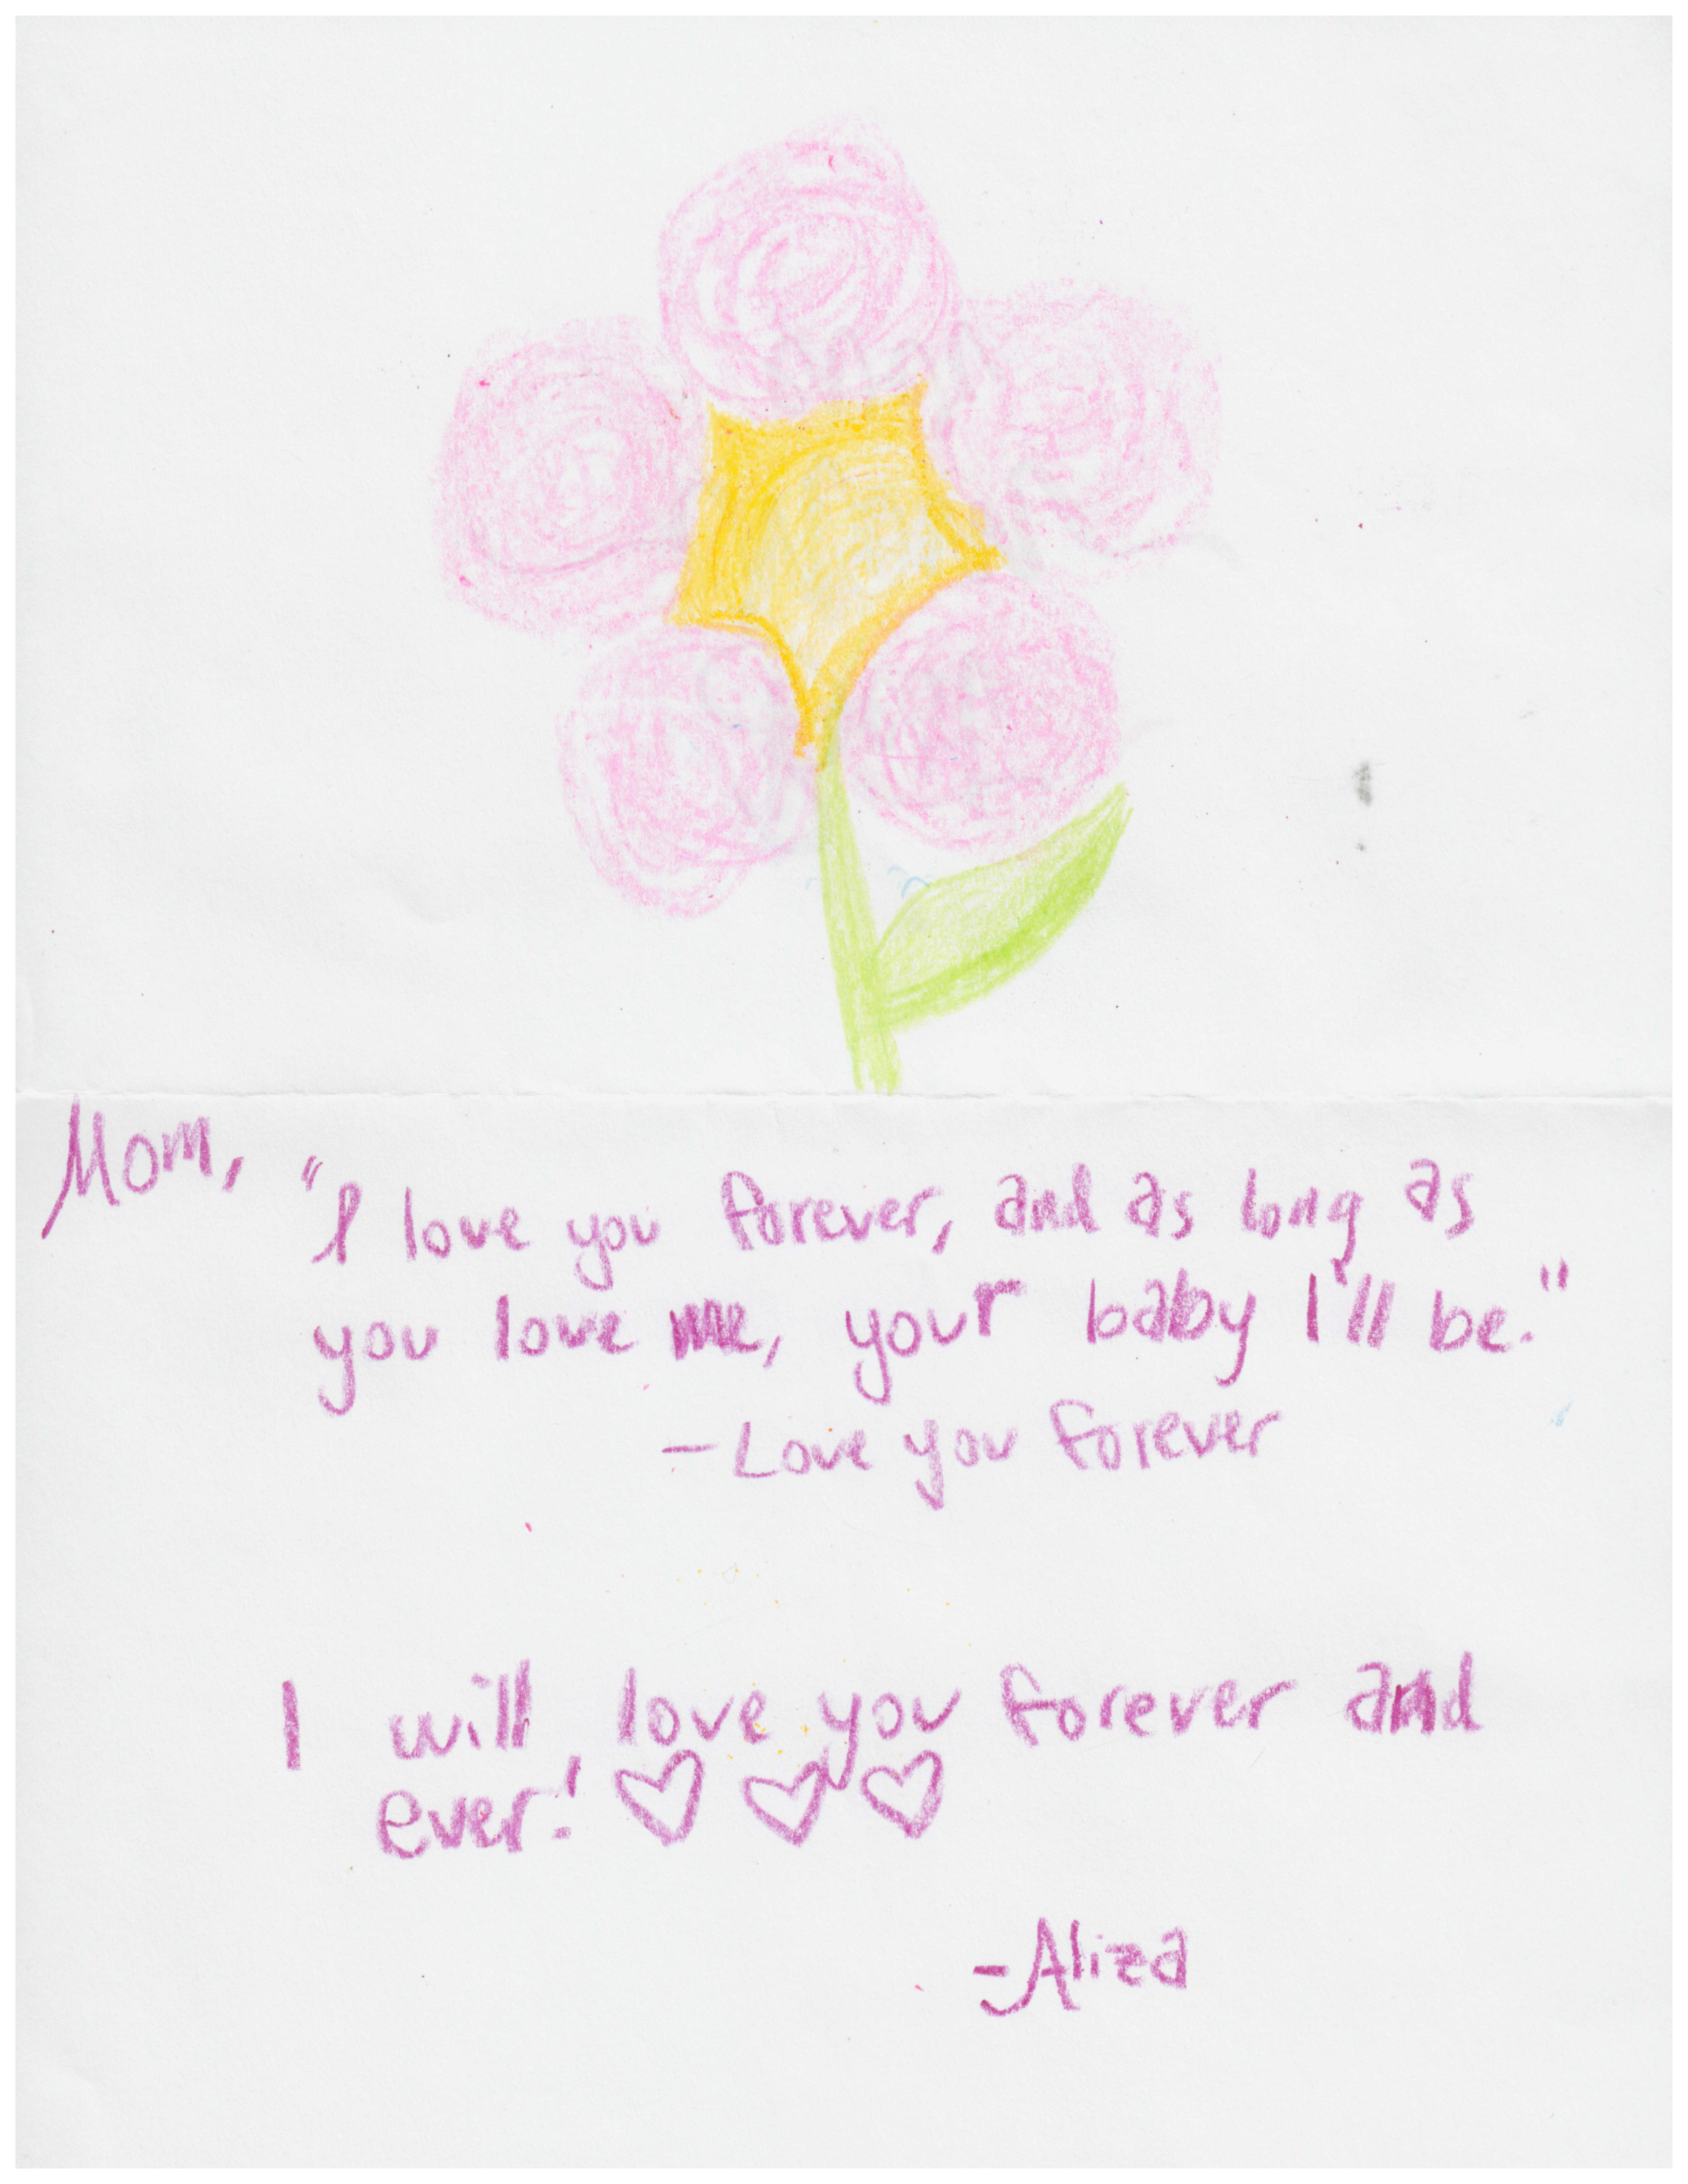 Mom,
"I love you forever, and as long as
you love me, your baby I'll be."
-Love you forever
I will love you forever and
ever! ♡ ♡ ♡
-Aliza